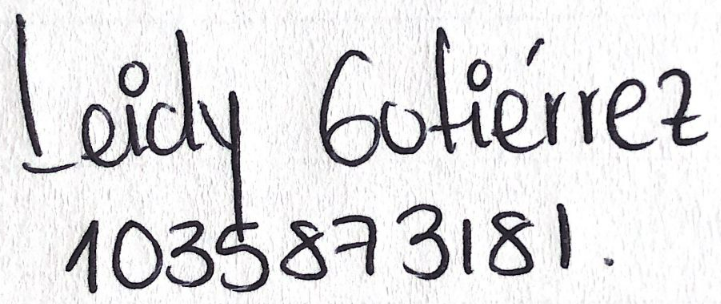 Leidy Gutiérrez
1035873181.